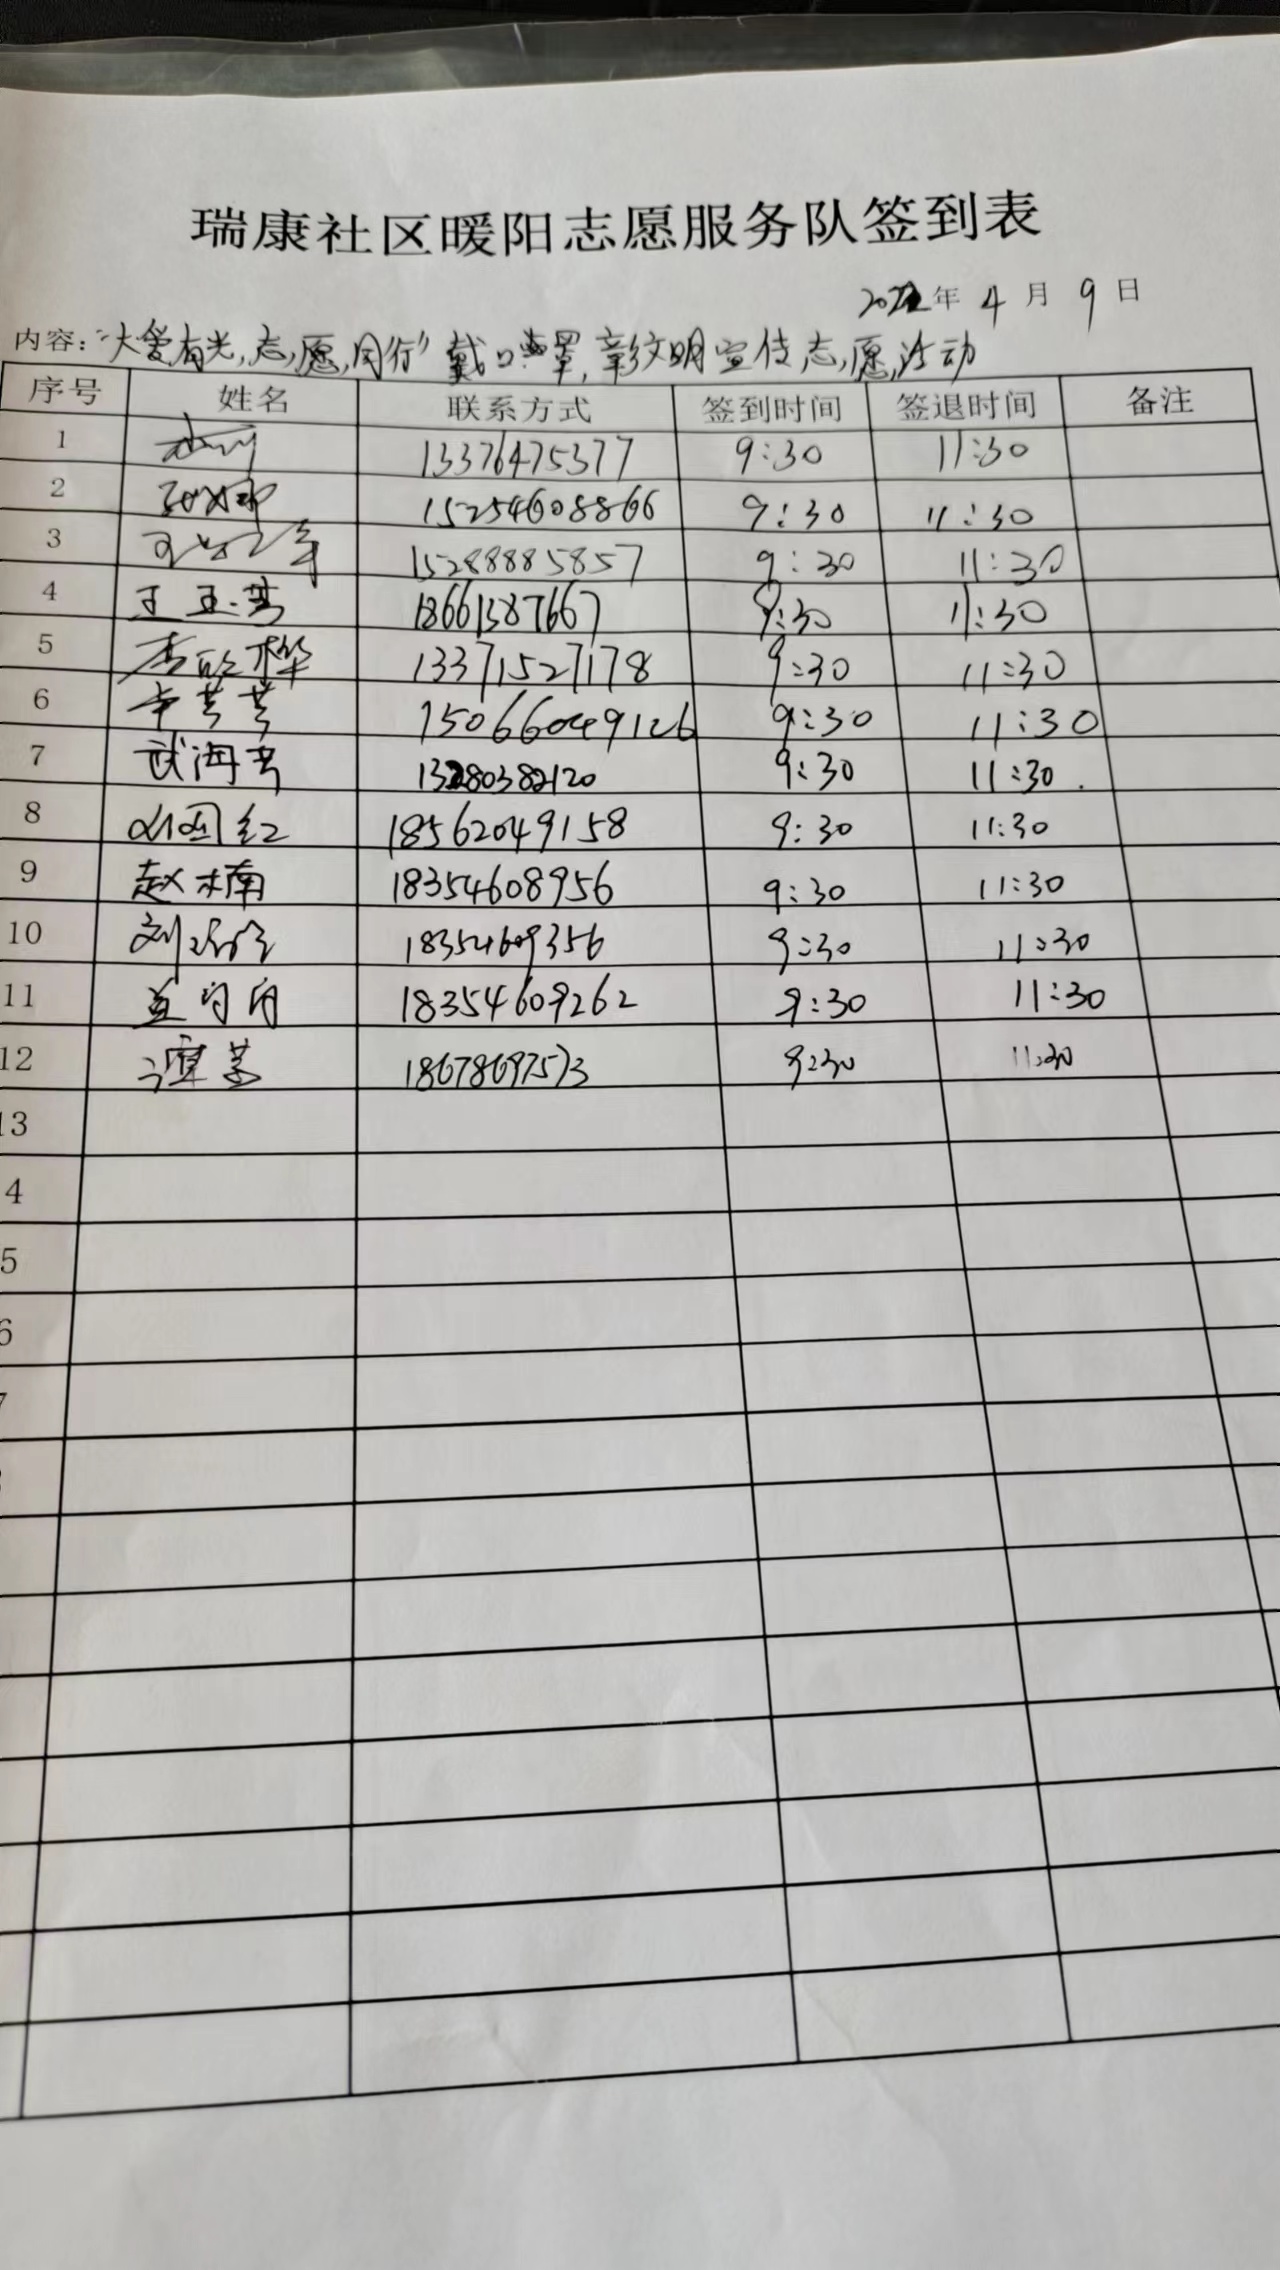 瑞康社区暖阳志愿服务队签到表
2022年 4 月 9 日
内容:“大爱有光,志愿同行”戴口罩,彰文明宣传志愿活动
序号 姓名 联系方式 签到时间 签退时间 备注
1 13376475377 9:30 11:30
2 15254608866 9:30 11:30
3 15288885857 9:30 11:30
4 18661387667 9:30 11:30
5 13371527178 9:30 11:30
6 15066049126 9:30 11:30
7 13280382120 9:30 11:30
8 18562049158 9:30 11:30
9 赵楠 18354608956 9:30 11:30
10 18354609356 9:30 11:30
11 18354609262 9:30 11:30
12 谭 18678697573 9:30 11:30
13
4
5
6
7